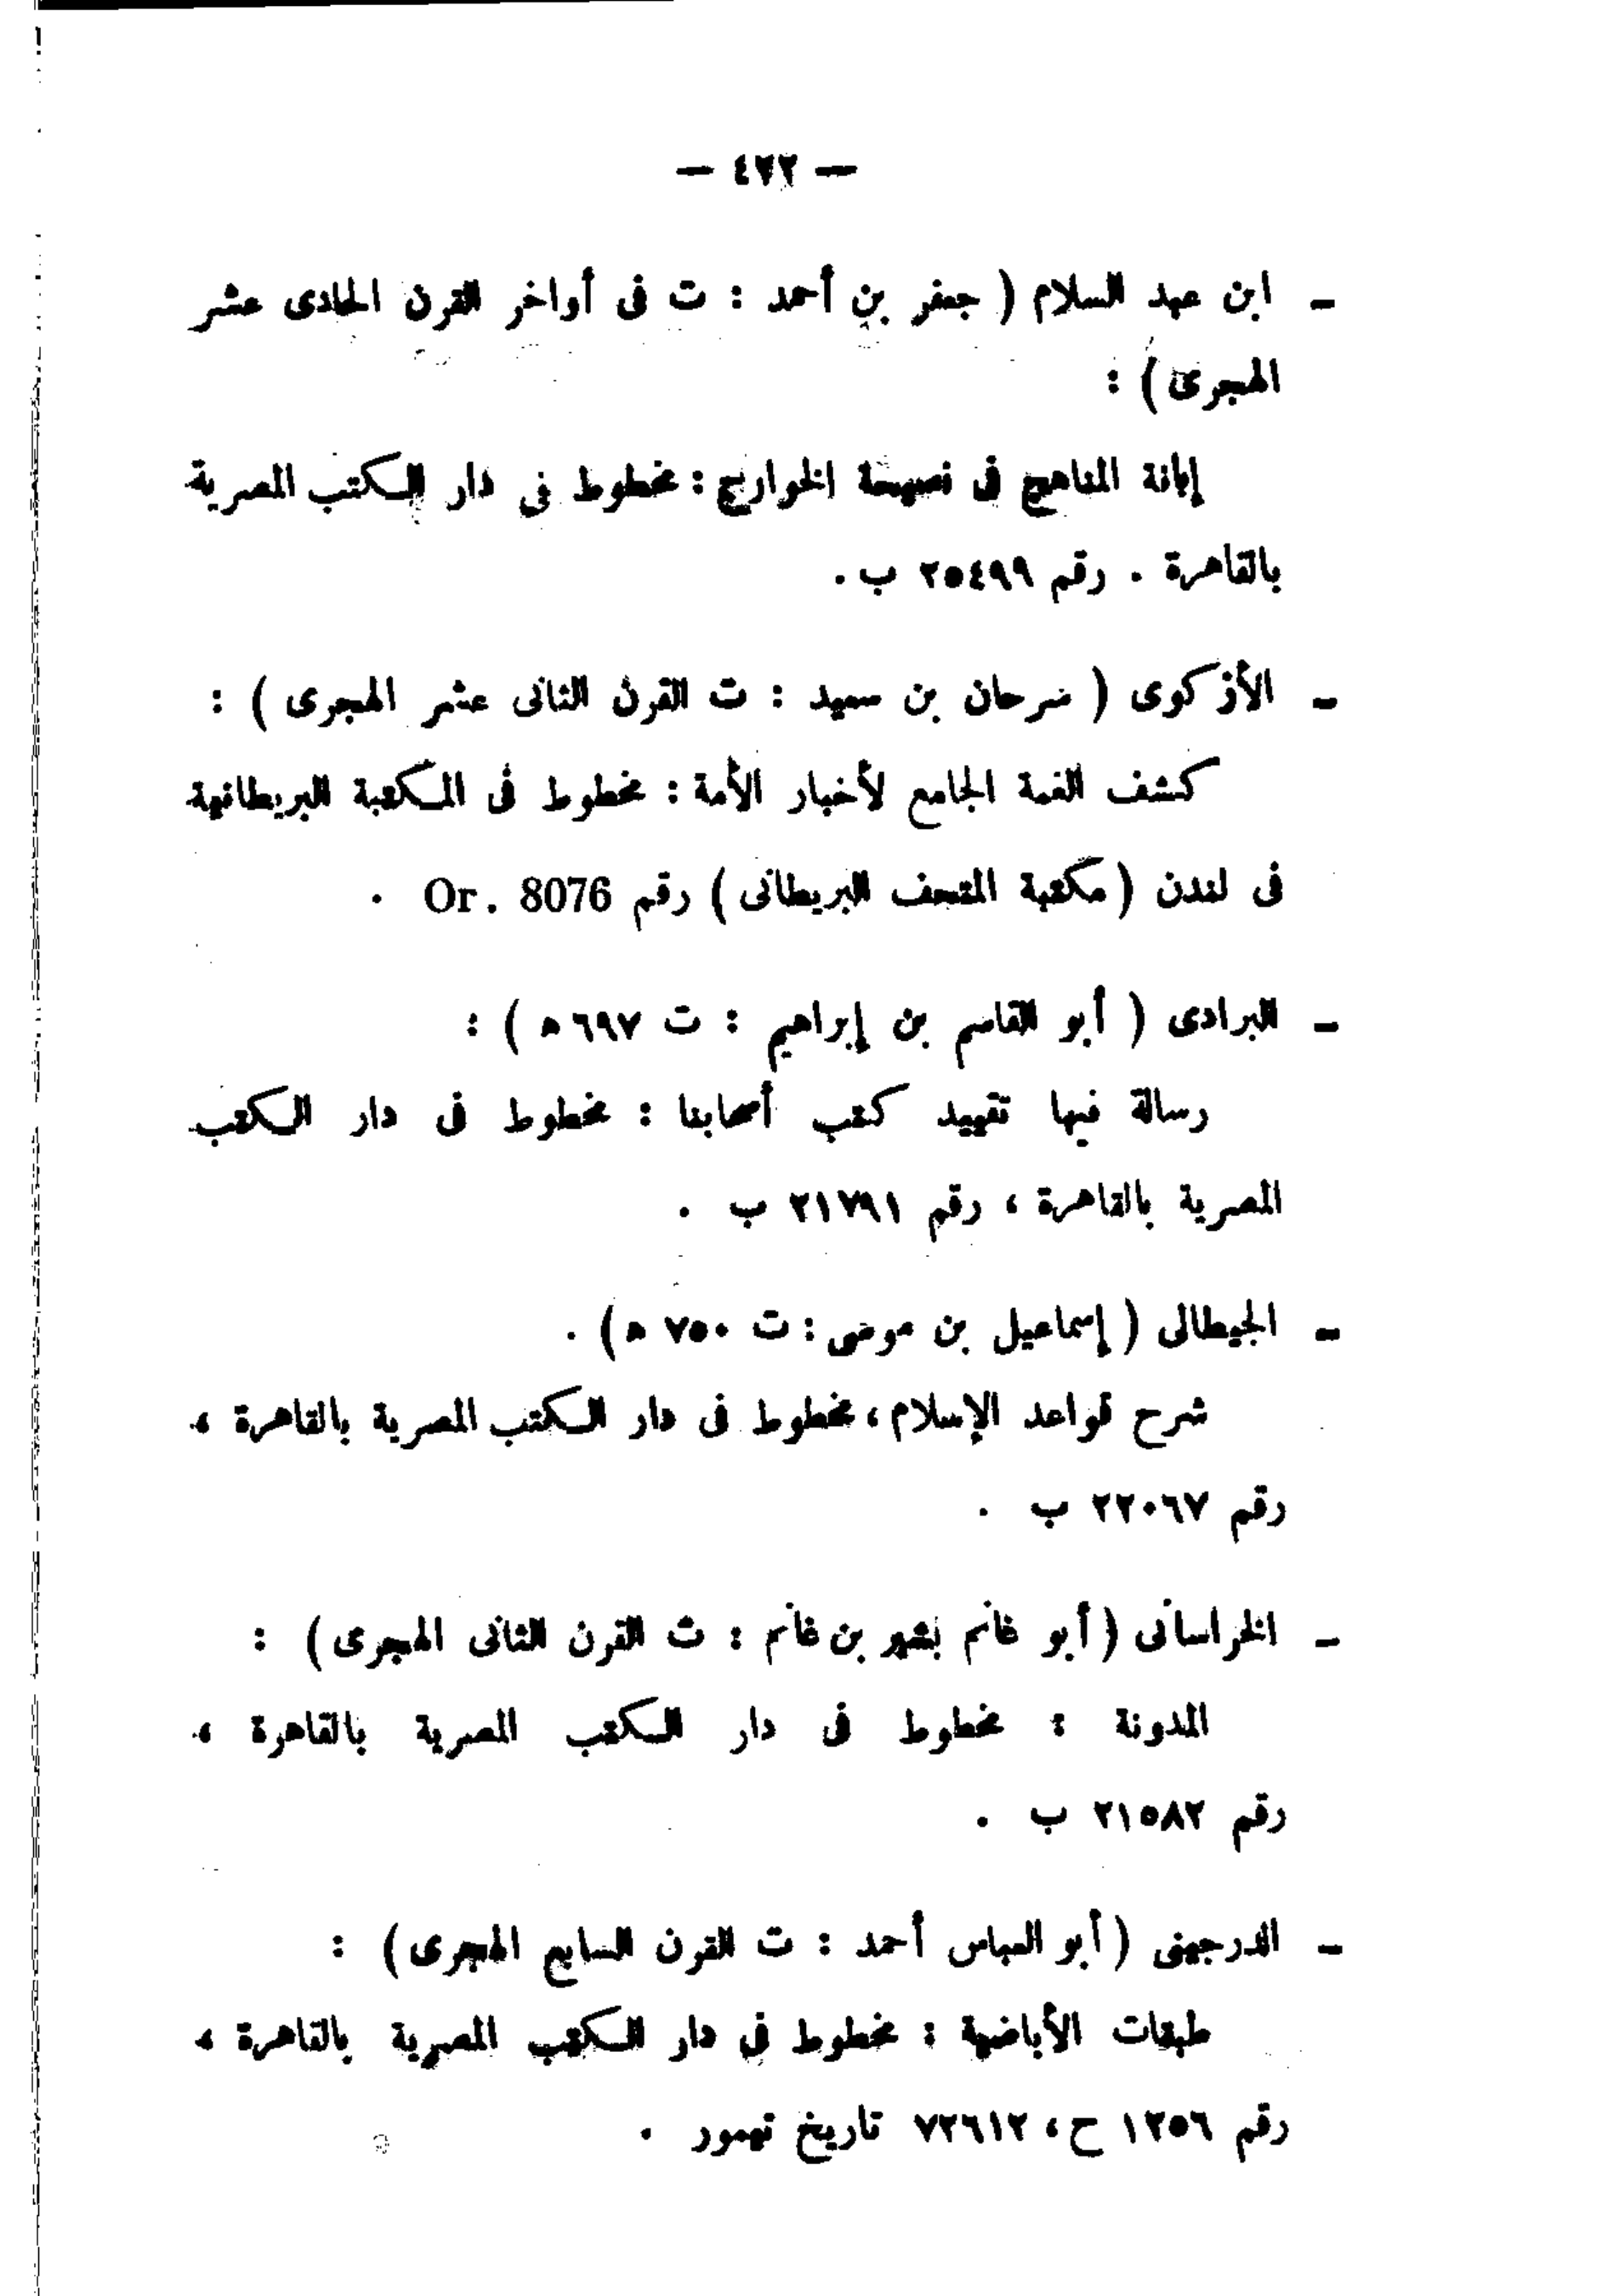 — ٤٢٢ —
- ابن عبد السلام ( جعفر بن أحمد : ت فى أواخر القرن الحادى عشر
الهجرى ) :
إبانة المناهج فى نصيحة الخوارج : مخطوط فى دار الكتب المصرية
بالقاهرة . رقم ٢٥٤٩٩ ب .
- الأزكوى ( سرحان بن سعيد : ت القرن الثانى عشر الهجرى ) :
كشف الغمة الجامع لأخبار الأمة : مخطوط فى المكتبة البريطانية
فى لندن ( مكتبة المتحف البريطانى ) رقم Or. 8076 .
- البرادى ( أبو القاسم بن إبراهيم : ت ٦٩٧ ه ) :
رسالة فيها تقييد كتب أصحابنا : مخطوط فى دار الكتب
المصرية بالقاهرة ، رقم ٢١٧٩١ ب .
- الجيطالى ( إسماعيل بن موسى : ت ٧٥٠ ه ) .
شرح قواعد الإسلام ، مخطوط فى دار الكتب المصرية بالقاهرة ،
رقم ٢٢٠٦٧ ب .
- الخراسانى ( أبو غانم بشير بن غانم : ت القرن الثانى الهجرى ) :
المدونة : مخطوط فى دار الكتب المصرية بالقاهرة ،
رقم ٢١٥٨٢ ب .
- الدرجينى ( أبو العباس أحمد : ت القرن السابع الهجرى ) :
طبقات الأباضية : مخطوط فى دار الكتب المصرية بالقاهرة ،
رقم ١٢٥٦ ح ، ٧٢٦١٢ تاريخ تيمور .